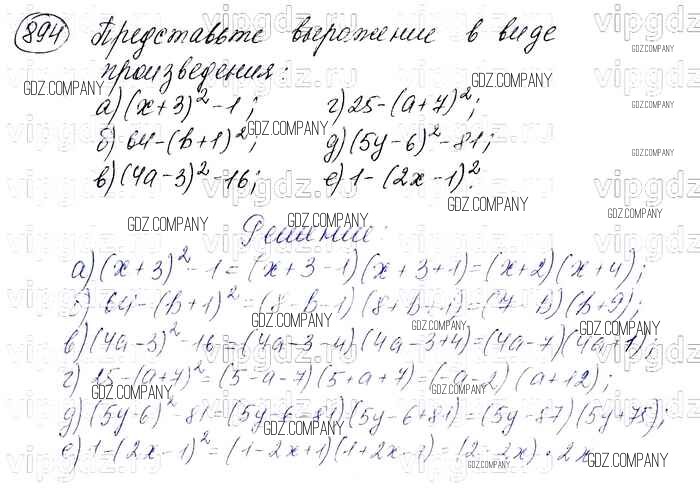 894 Представьте выражение в виде
произведения:
а) (x+3)² - 1; г) 25 - (a+7)²;
б) 64 - (b+1)²; д) (5y-6)² - 81;
в) (4a-3)² - 16; е) 1 - (2x-1)².
Решение:
а) (x+3)² - 1 = (x+3-1)(x+3+1) = (x+2)(x+4);
б) 64 - (b+1)² = (8-b-1)(8+b+1) = (7-b)(b+9);
в) (4a-3)² - 16 = (4a-3-4)(4a-3+4) = (4a-7)(4a+1);
г) 25 - (a+7)² = (5-a-7)(5+a+7) = (-a-2)(a+12);
д) (5y-6)² - 81 = (5y-6-81)(5y-6+81) = (5y-87)(5y+75);
е) 1 - (2x-1)² = (1-2x+1)(1+2x-1) = (2-2x)·2x